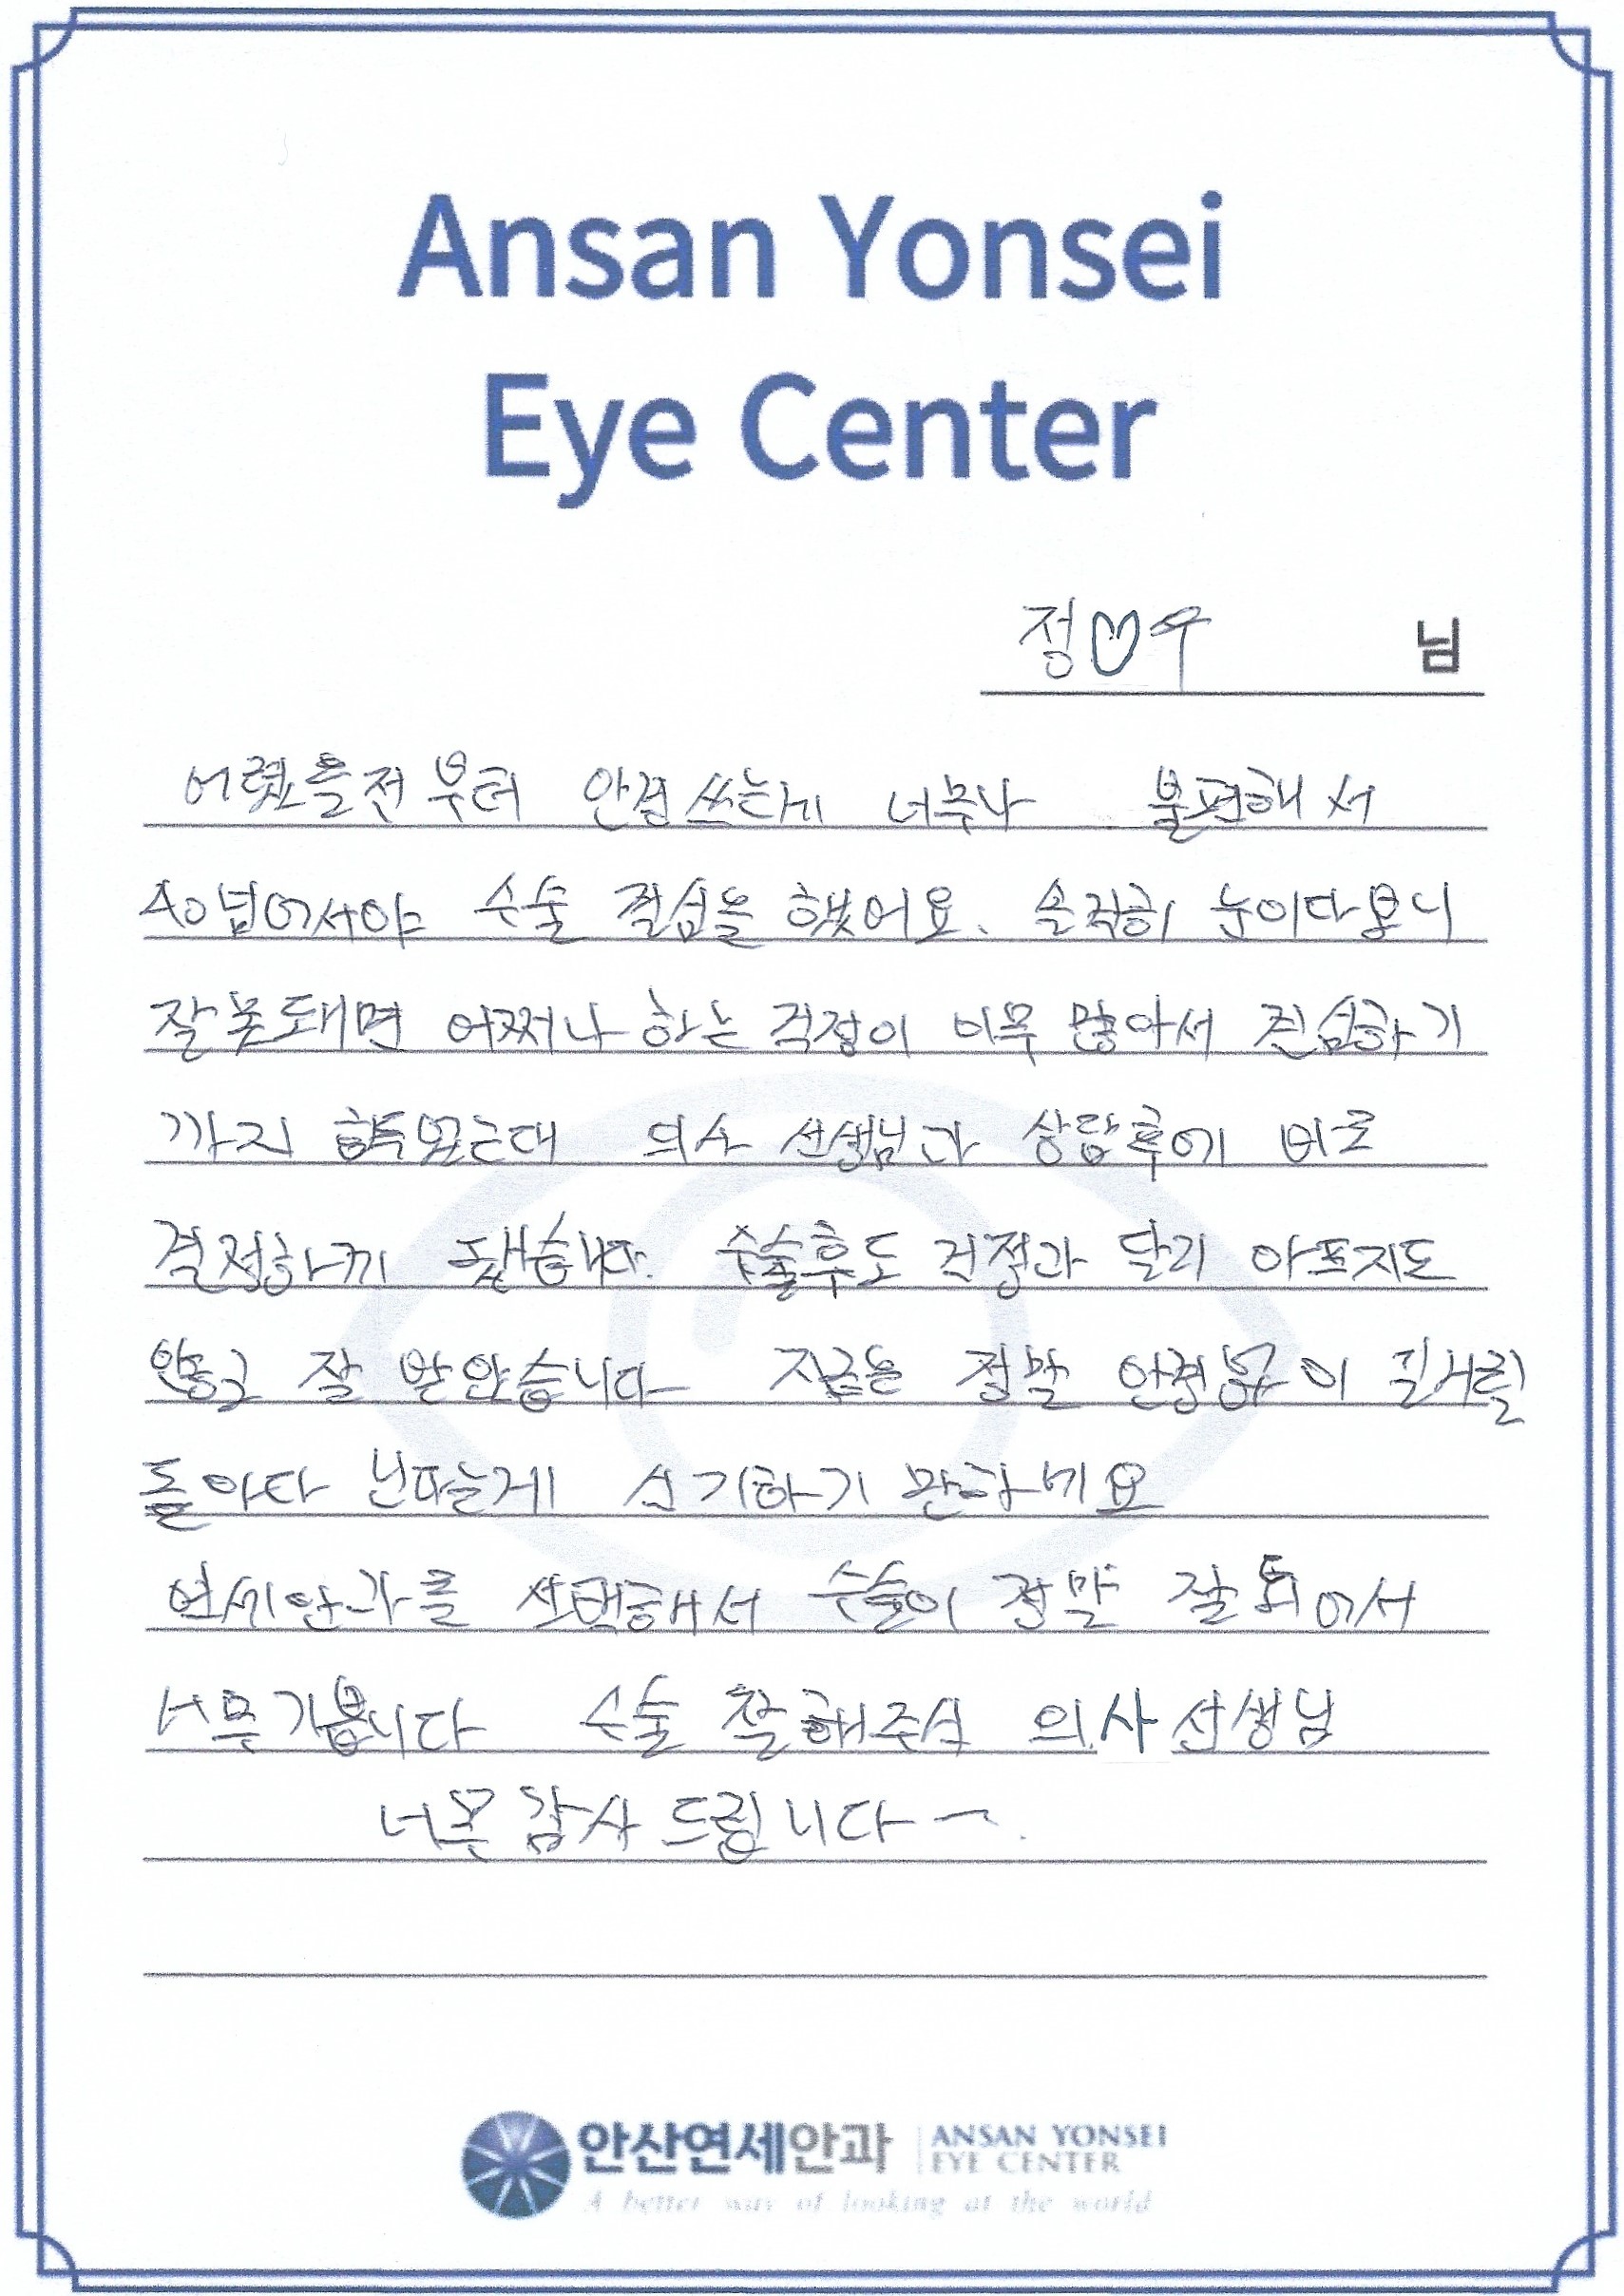 Ansan Yonsei
Eye Center
정♡우 님
어렸을전부터 안경쓰는게 너무나 불편해서
40넘어서야 수술 결심을 했어요. 솔직히 눈이다보니
잘못돼면 어쩌나 하는 걱정이 너무 많아서 결심하기
까지 의사 선생님과 상담후에 바로
결정하게 됐습니다. 수술후도 걱정과 달리 아프지도
않고 잘 습니다 지금은 정말 안경없이 길거리를
돌아다 닌다는게 신기하기 만하네요
연세안과를 선택해서 수술이 정말 잘 되어서
너무 기쁩니다 수술 잘해주신 의사선생님
너무 감사 드립니다~.
안산연세안과 ANSAN YONSEI
EYE CENTER
A better way of looking at the world